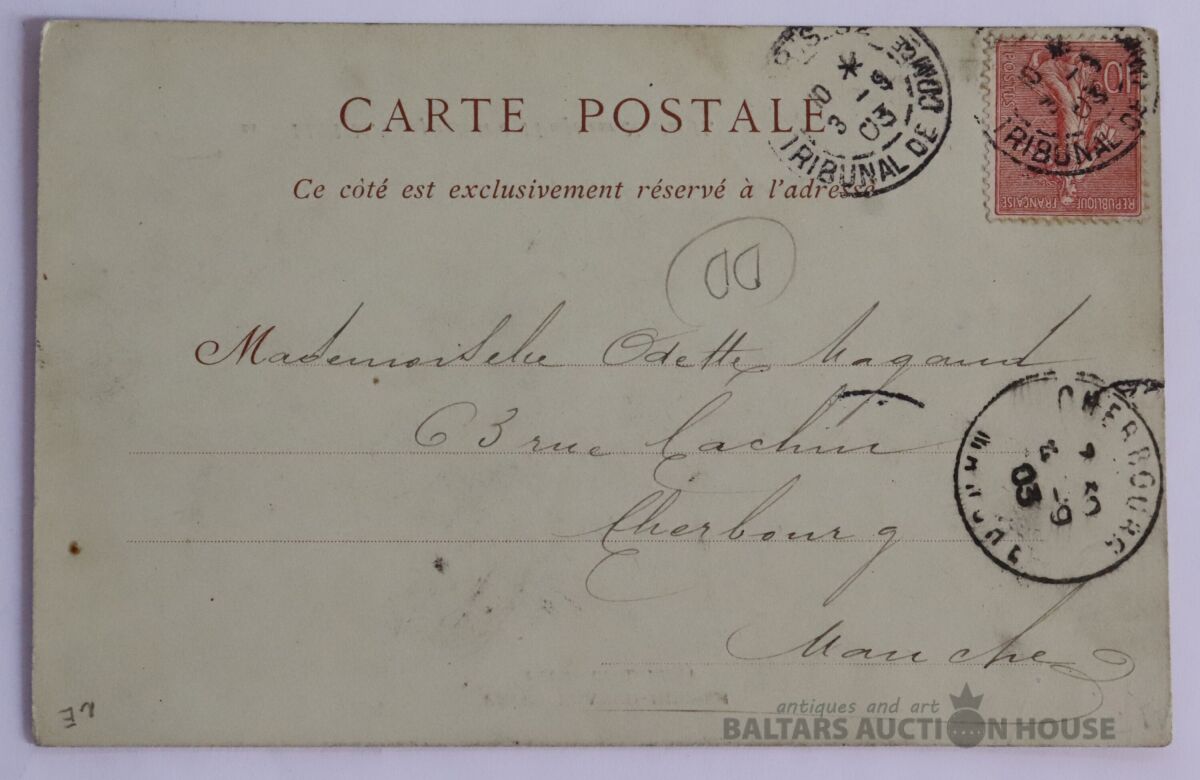 CARTE POSTALE
Ce côté est exclusivement réservé à l'adresse
TRIBUNAL DE COMMCE
3 -1
03
10
POSTES
RÉPUBLIQUE FRANÇAISE
TRIBUNAL DE
03
DD
Mademoiselle Odette Magaud
63 rue Cachin
Cherbourg
Manche
CHERBOURG
03
MANCHE
antiques and art
BALTARS AUCTION HOUSE